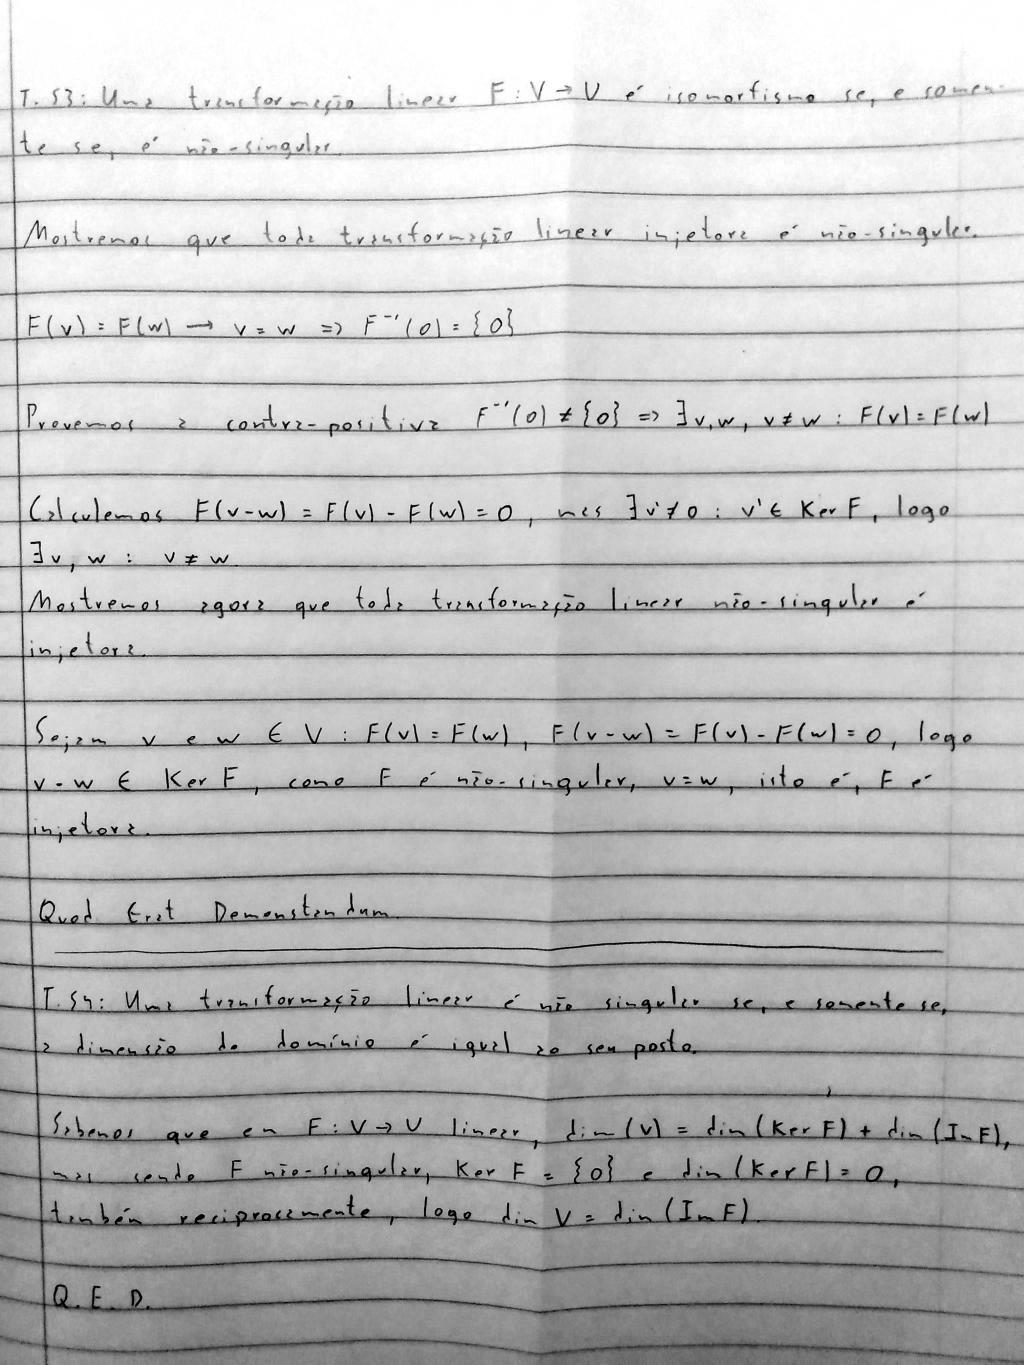 T. 53: Uma transformação linear F : V → U é isomorfismo se, e somen-
te se, é não-singular.
Mostremos que toda transformação linear injetora é não-singular.
F(v) = F(w) → v = w => F⁻¹(0) = {0}
Provemos a contra-positiva F⁻¹(0) ≠ {0} => ∃v,w, v ≠ w : F(v) = F(w)
Calculemos F(v-w) = F(v) - F(w) = 0, mas ∃v'≠0 : v' ∈ Ker F, logo
∃v, w : v ≠ w.
Mostremos agora que toda transformação linear não-singular é
injetora.
Sejam v e w ∈ V : F(v) = F(w), F(v-w) = F(v) - F(w) = 0, logo
v-w ∈ Ker F, como F é não-singular, v=w, isto é, F é
injetora.
Quod Erat Demonstandum.
T. 54: Uma transformação linear é não singular se, e somente se,
a dimensão do domínio é igual ao seu posto.
Sabemos que em F : V → U linear, dim(V) = dim(Ker F) + dim(Im F),
mas sendo F não-singular, Ker F = {0} e dim(Ker F) = 0,
também reciprocamente, logo dim V = dim(Im F).
Q. E. D.